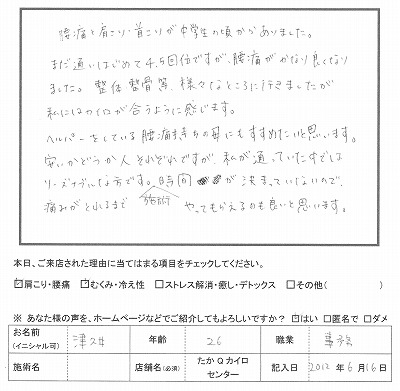 腰痛と肩こり・首こりが中学生の頃からありました。
まだ通いはじめて4,5回位ですが、腰痛がかなり良くなり
ました。整体、整骨等、様々なところに行きましたが
私にはカイロが合うように感じます。
ヘルパーをしている腰痛持ちの母にもすすめたいと思います。
安いかどうか人それぞれですが、私が通っていた中では
リーズナブルな方です。時間が決まっていないので、
痛みがとれるまで施術やってもらえるのも良いと思います。
本日、ご来店された理由に当てはまる項目をチェックしてください。
☑肩こり・腰痛 ☑むくみ・冷え性 □ストレス解消・癒し・デトックス □その他( )
※ あなた様の声を、ホームページなどでご紹介してもよろしいですか? ☑はい □匿名で □ダメ
お名前 (イニシャル可) 津久井 年齢 26 職業 事務
施術名 店舗名(必須) たかQカイロセンター 記入日 2012年6月16日